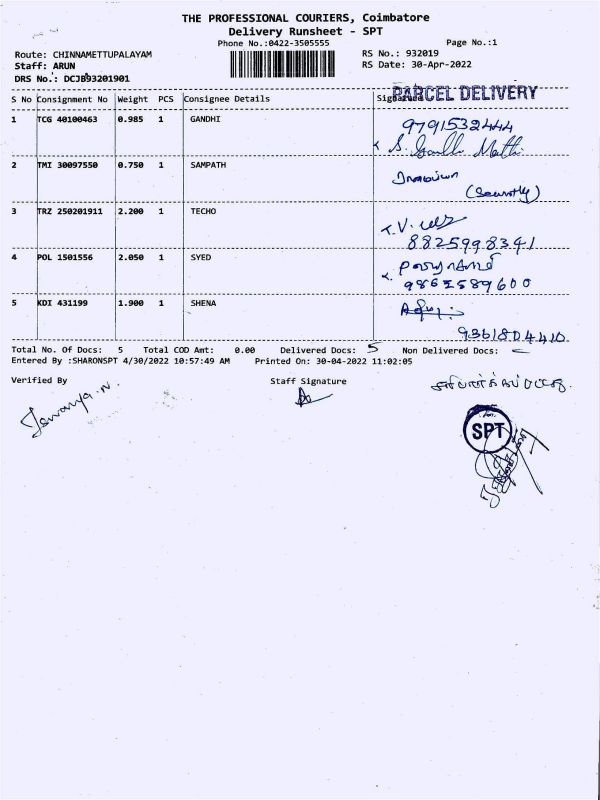 THE PROFESSIONAL COURIERS, Coimbatore
Delivery Runsheet - SPT
Phone No.:0422-3505555
Page No.:1
Route: CHINNAMETTUPALAYAM
RS No.: 932019
Staff: ARUN
RS Date: 30-Apr-2022
DRS No.: DCJB93201901
PARCEL DELIVERY
S No Consignment No Weight PCS Consignee Details Signature
1 TCG 40100463 0.985 1 GANDHI 9791532444
2 TMI 30097550 0.750 1 SAMPATH
(Security)
3 TRZ 250201911 2.200 1 TECHO
8825998341
4 POL 1501556 2.050 1 SYED
9862589600
5 KDI 431199 1.900 1 SHENA
Total No. Of Docs: 5 Total COD Amt: 0.00 Delivered Docs: 5 Non Delivered Docs:
Entered By :SHARONSPT 4/30/2022 10:57:49 AM Printed On: 30-04-2022 11:02:05
Verified By Staff Signature
SPT